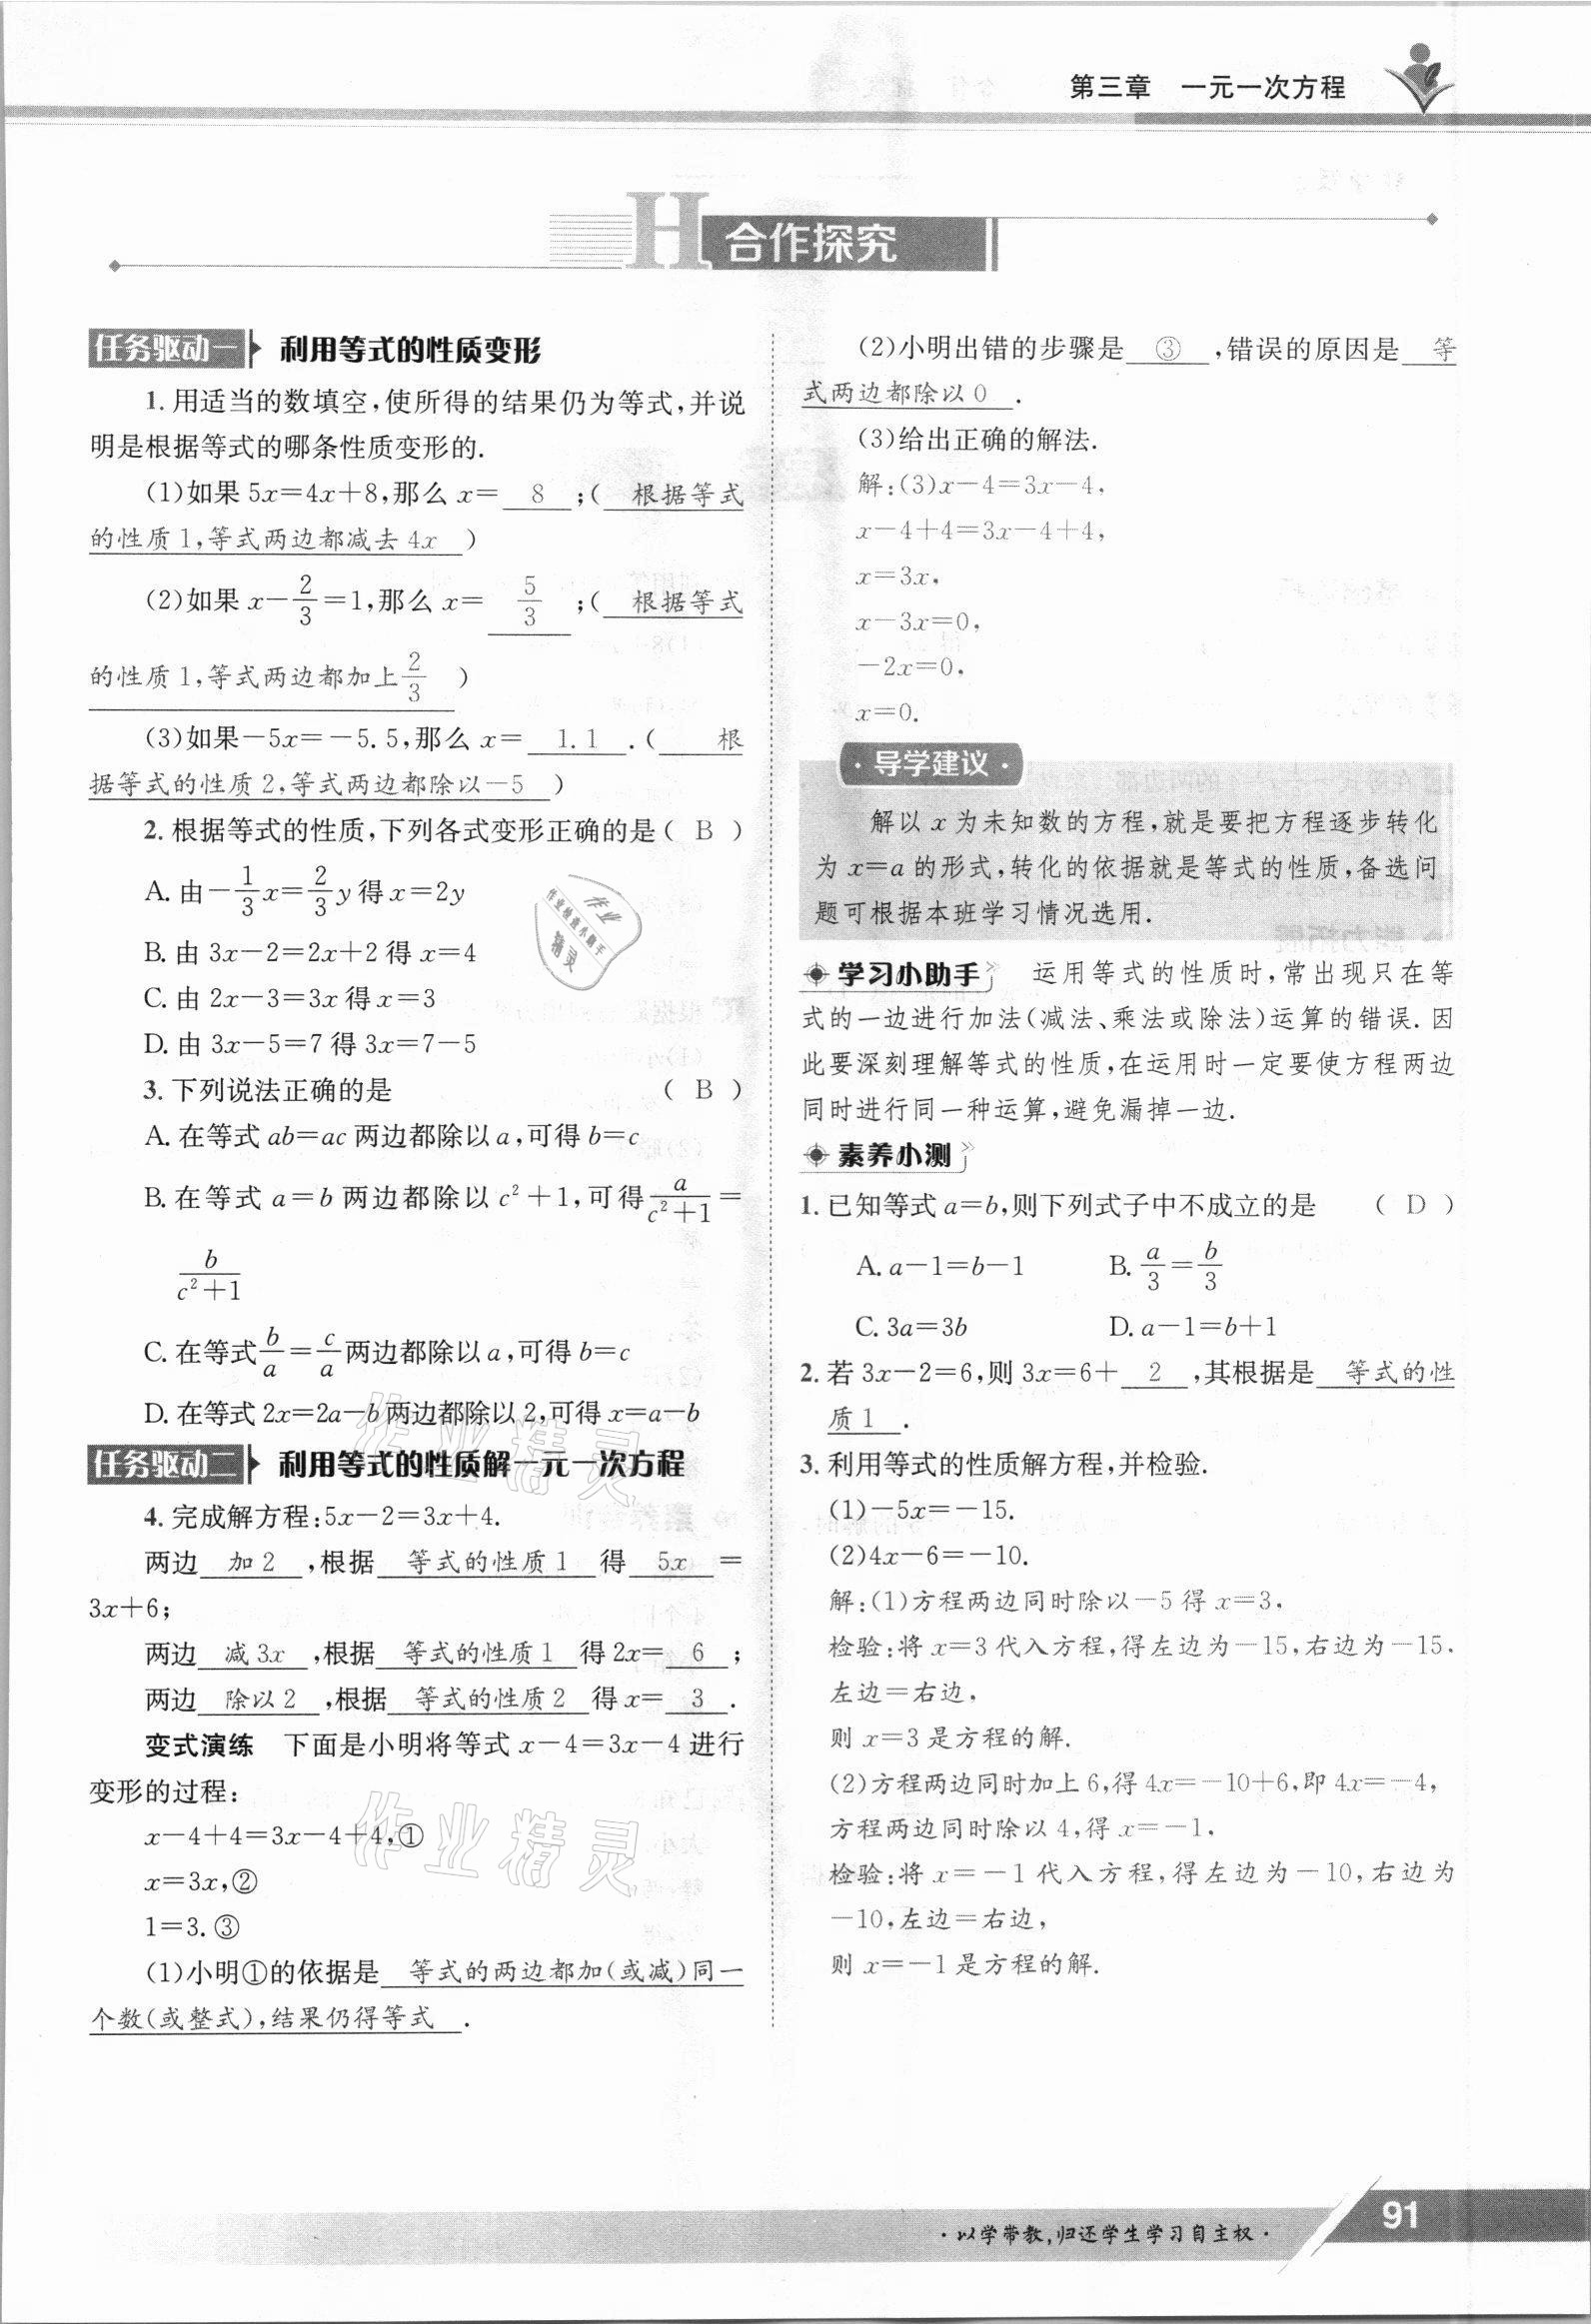 第三章 一元一次方程
H 合作探究
任务驱动一 利用等式的性质变形
1. 用适当的数填空,使所得的结果仍为等式,并说
明是根据等式的哪条性质变形的.
(1)如果 5x=4x+8,那么 x= 8 ;( 根据等式
的性质 1,等式两边都减去 4x )
(2)如果 x-2/3=1,那么 x= 5/3 ;( 根据等式
的性质 1,等式两边都加上 2/3 )
(3)如果-5x=-5.5,那么 x= 1.1 .( 根
据等式的性质 2,等式两边都除以-5 )
2. 根据等式的性质,下列各式变形正确的是( B )
A. 由-1/3x=2/3y得 x=2y
B. 由 3x-2=2x+2 得 x=4
C. 由 2x-3=3x 得 x=3
D. 由 3x-5=7 得 3x=7-5
3. 下列说法正确的是 ( B )
A. 在等式 ab=ac 两边都除以 a,可得 b=c
B. 在等式 a=b 两边都除以 c²+1,可得 a/(c²+1)=
b/(c²+1)
C. 在等式 b/a=c/a 两边都除以 a,可得 b=c
D. 在等式 2x=2a-b 两边都除以 2,可得 x=a-b
任务驱动二 利用等式的性质解一元一次方程
4. 完成解方程:5x-2=3x+4.
两边 加 2 ,根据 等式的性质 1 得 5x =
3x+6;
两边 减 3x ,根据 等式的性质 1 得 2x= 6 ;
两边 除以 2 ,根据 等式的性质 2 得 x= 3 .
变式演练 下面是小明将等式 x-4=3x-4 进行
变形的过程:
x-4+4=3x-4+4,①
x=3x,②
1=3.③
(1)小明①的依据是 等式的两边都加(或减)同一
个数(或整式),结果仍得等式 .
(2)小明出错的步骤是 ③ ,错误的原因是 等
式两边都除以 0 .
(3)给出正确的解法.
解:(3)x-4=3x-4,
x-4+4=3x-4+4,
x=3x,
x-3x=0,
-2x=0,
x=0.
·导学建议·
解以 x 为未知数的方程,就是要把方程逐步转化
为 x=a 的形式,转化的依据就是等式的性质,备选问
题可根据本班学习情况选用.
学习小助手 运用等式的性质时,常出现只在等
式的一边进行加法(减法、乘法或除法)运算的错误. 因
此要深刻理解等式的性质,在运用时一定要使方程两边
同时进行同一种运算,避免漏掉一边.
素养小测
1. 已知等式 a=b,则下列式子中不成立的是 ( D )
A. a-1=b-1 B. a/3=b/3
C. 3a=3b D. a-1=b+1
2. 若 3x-2=6,则 3x=6+ 2 ,其根据是 等式的性
质 1 .
3. 利用等式的性质解方程,并检验.
(1)-5x=-15.
(2)4x-6=-10.
解:(1)方程两边同时除以-5 得 x=3,
检验:将 x=3 代入方程,得左边为-15,右边为-15.
左边=右边,
则 x=3 是方程的解.
(2)方程两边同时加上 6,得 4x=-10+6,即 4x=-4,
方程两边同时除以 4,得 x=-1.
检验:将 x=-1 代入方程,得左边为-10,右边为
-10,左边=右边,
则 x=-1 是方程的解.
作业
作业检查小助手
精灵
作业精灵
作业精灵
·以学带教,归还学生学习自主权·
91